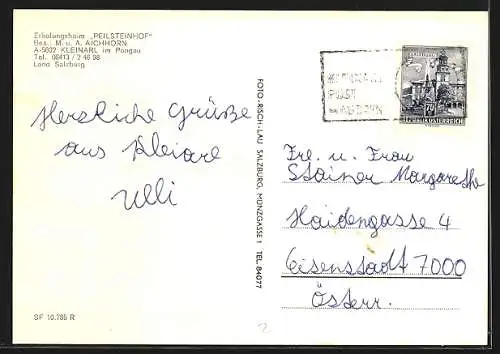 Erholungsheim „PEILSTEINHOF"
Bes.: M. u. A. AICHHORN
A-5602 KLEINARL im Pongau
Tel. 06413 / 2 46 98
Land Salzburg
Herzliche Grüße
aus Kleiarl
Ulli
SF 10.785 R
FOTO-RISCH-LAU SALZBURG, MÜNZGASSE 1 TEL. 84077
REPUBLIK ÖSTERREICH
Frl. u. Frau
Stainer Margarethe
Haidengasse 4
Eisenstadt 7000
Österr.
2